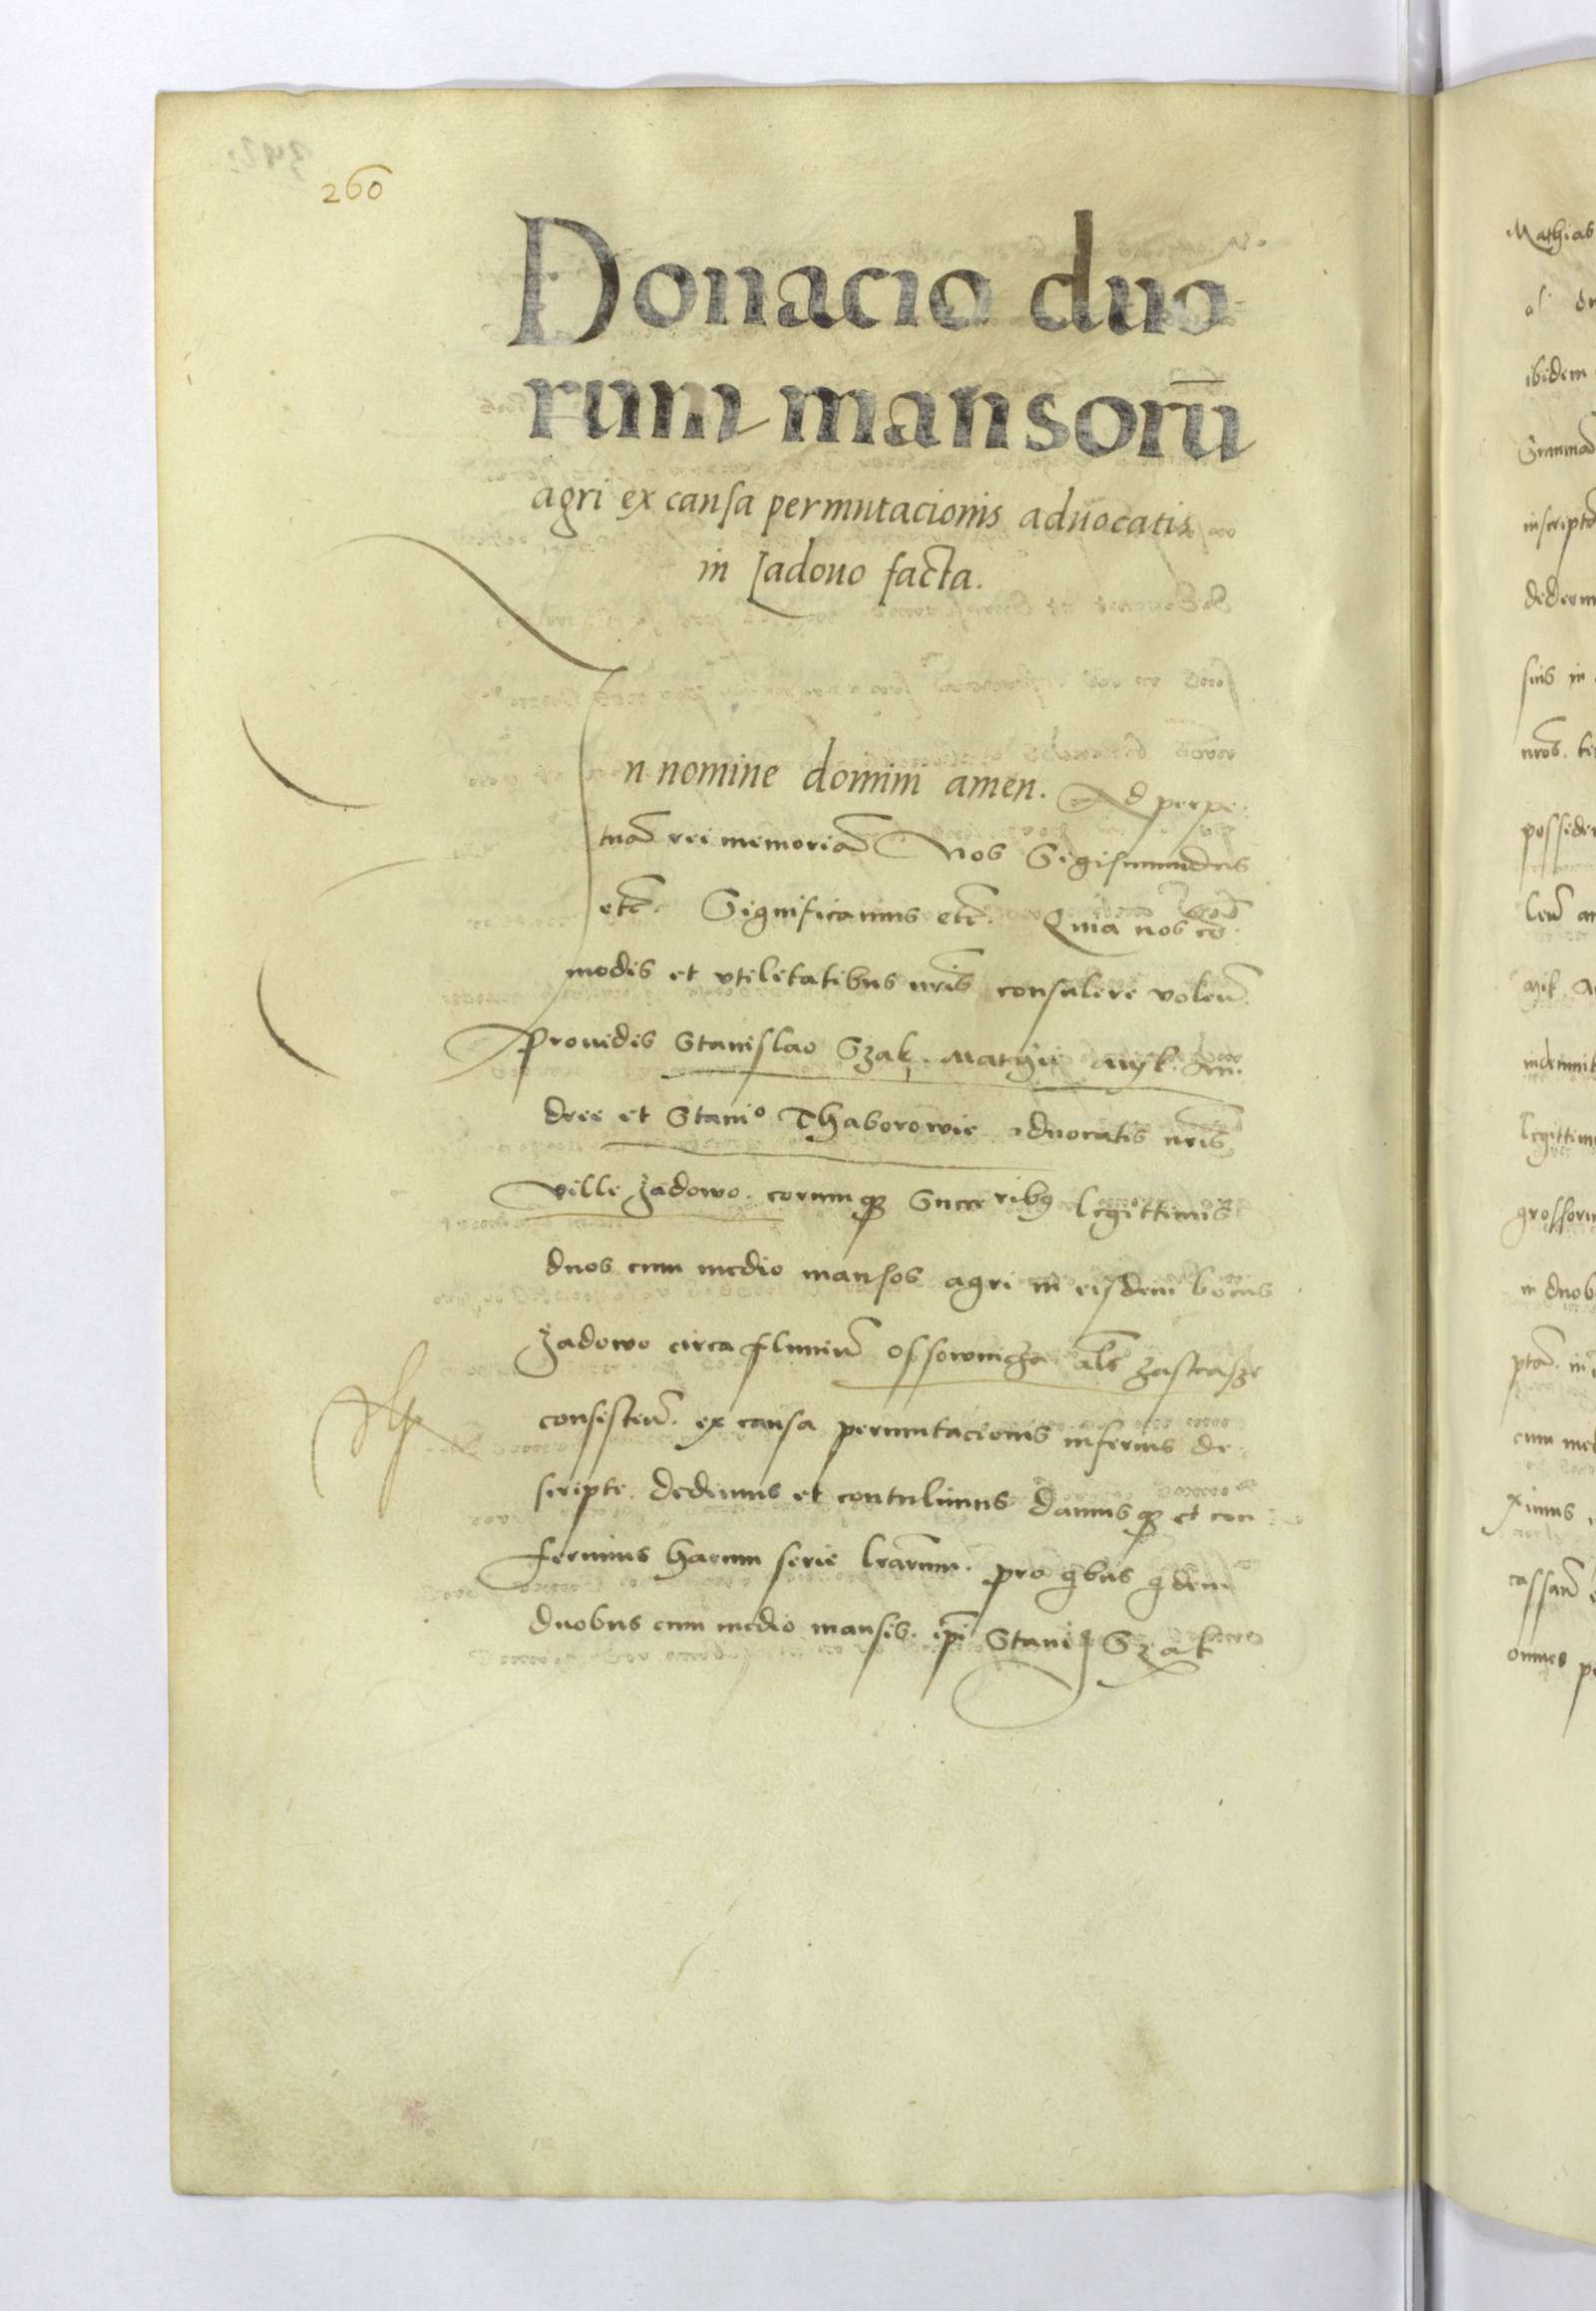 260
Donacio duo
rum mansorū
agri ex causa permutacionis aduocatis
in Jadouo facta.
In nomine domini amen. Ad perpe
tuā rei memoriā Nos Sigismundus
etc̄. Significamus etc̄. Quia nos co
modis et vtilitatibus nrīs consulere volen̄
Prouidis Stanislao Szak. Mathie An
dree et Stanio Thaborowie aduocatis nrīs
ville Jadowo. eorumqꝫ Succeribꝯ legittimis
duos cum medio mansos agri in eisdem bonis
Jadowo circa fluuiū ossownicza alš
consisten̄. ex causa permutacionis inferius de
scripte. dedimus et contulimus damusqꝫ et con
ferimus harum serie lrārum. pro qbus qdem
duobus cum medio mansis. ip̄i Stani Szak
Mathias
ibidem
inscripta
suis in
nros.
leū
legittim
grossoru
in duob
cum med
ximus
omnes